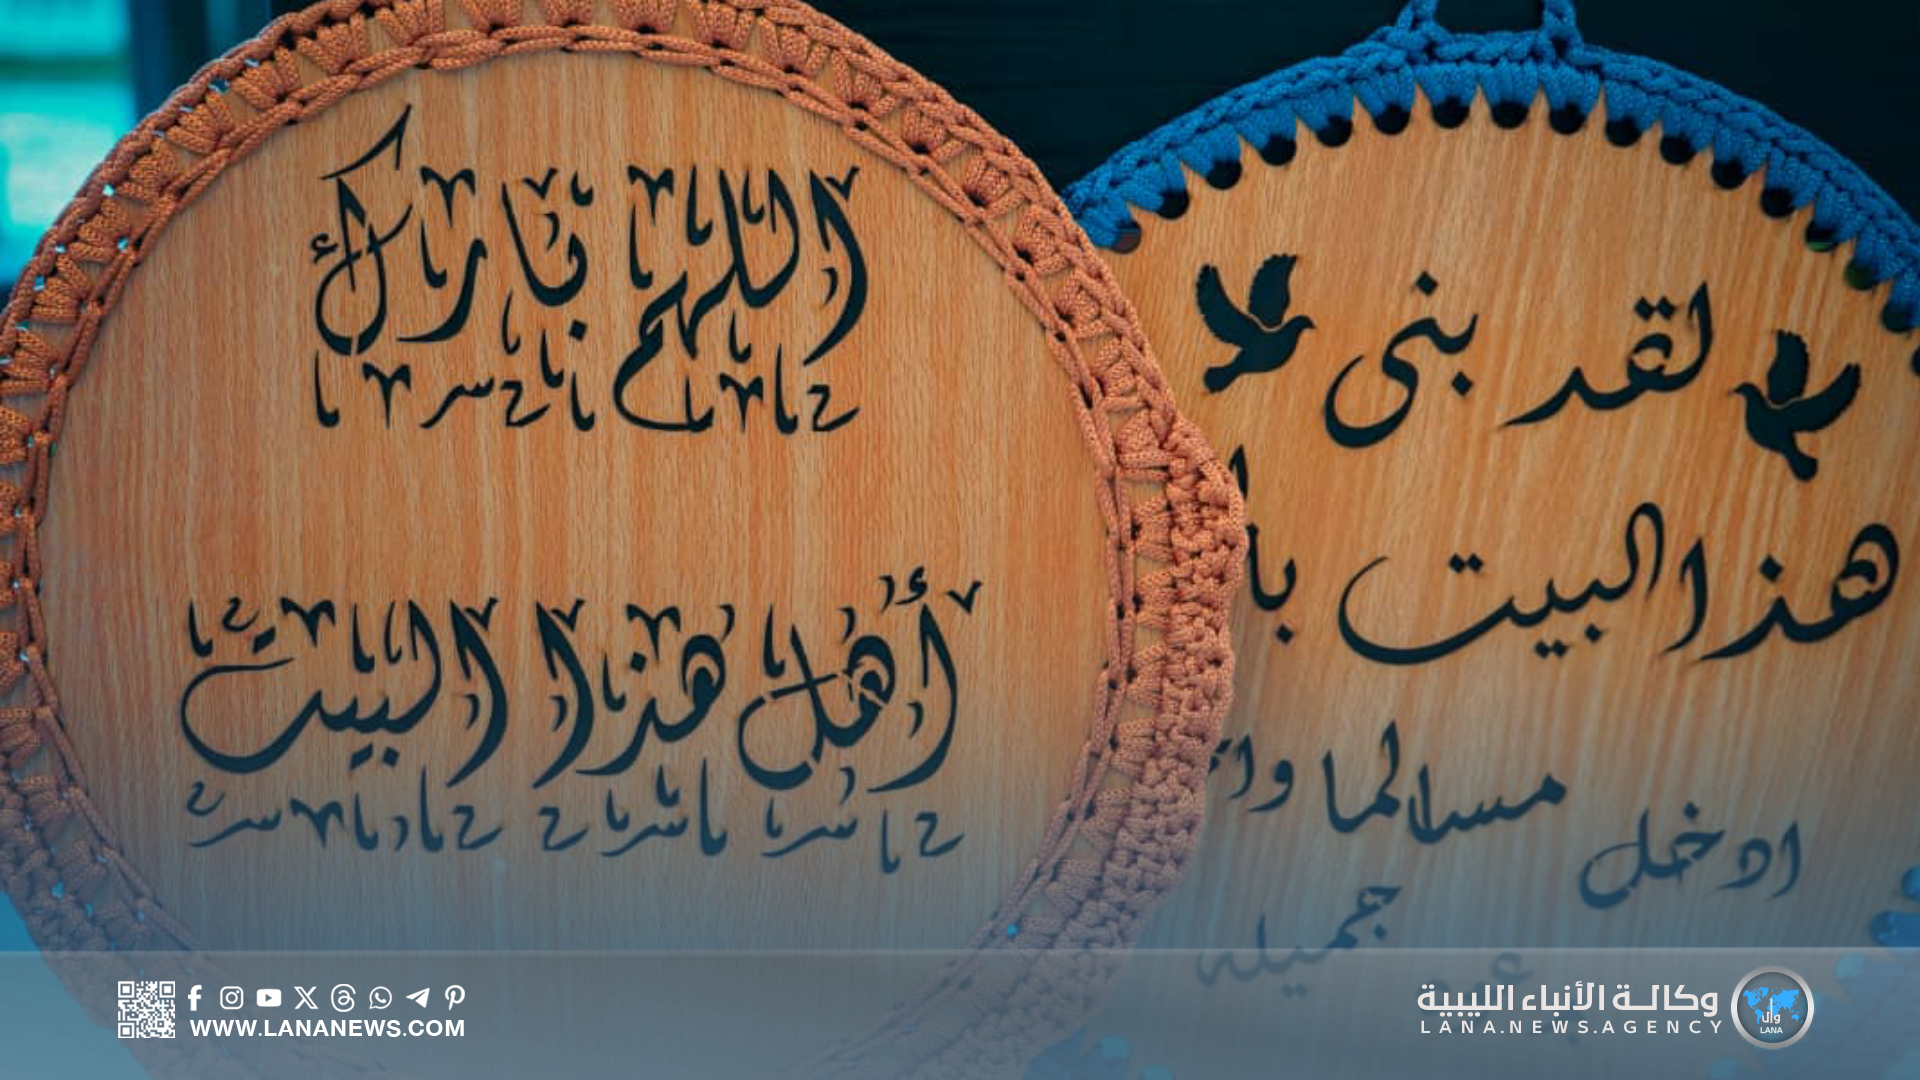 اللهم بارك
أهل هذا البيت
لقد بنى
هذا البيت
ادخل مسالما
جميله
WWW.LANANEWS.COM
وكالة الأنباء الليبية
LANA.NEWS.AGENCY
وال
LANA